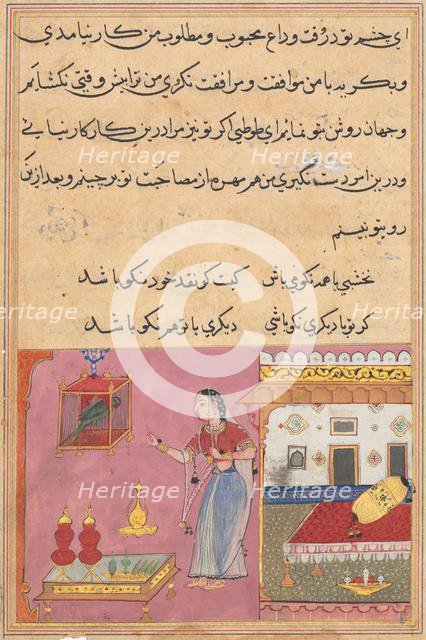 ای چشم تو در وقت وداع محبوب و مطلوب من کار نیامدی
و بکریه با من موافقت و مرافقت نکردی من ترا بیش وقتی نکشایم
و جهان روشن بتو ننمایم ای طوطی اکر تو نیز مرا درین کار کار نیائی
و درین امر دست نکیری من هم مهره از مصاحبت تو برچینم و بعد ازین
روبتو نبینم
نخشبی با همه نکو می باش کیت کو نقد خود نکو باشد
کر تو با دیکری نکو باشی دیکری با تو هم نکو باشد
Heritage
Heritage
Heritage
Heritage
Heritage
Heritage
Heritage
Heritage
Heritage